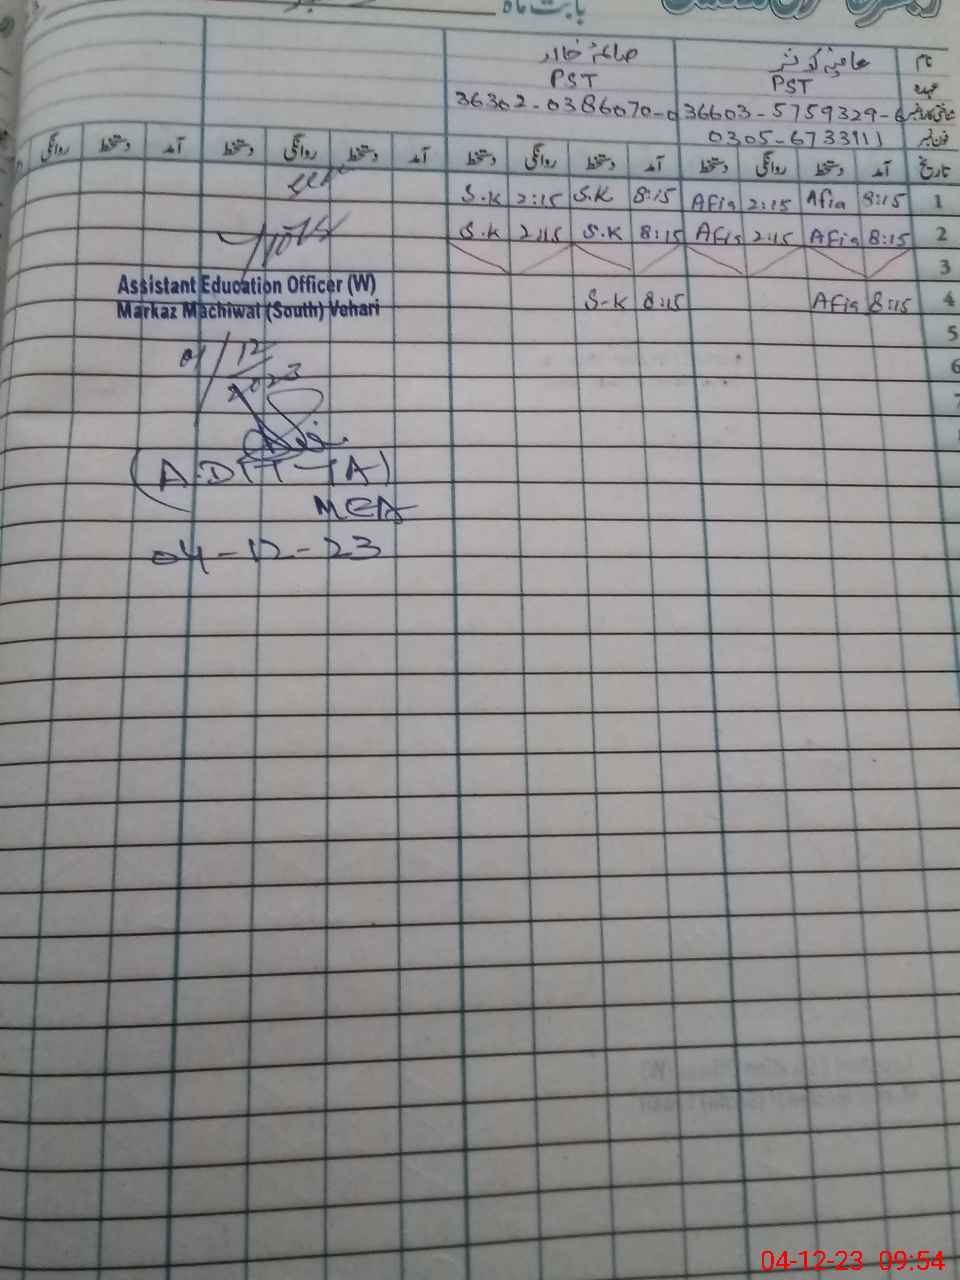 بابت ماہ
نام
عہدہ PST PST
36603-5759329-6 36302-0386070-0
فون نمبر 0305-6733911
تاریخ آمد دستخط روانگی دستخط آمد دستخط روانگی دستخط آمد دستخط روانگی دستخط آمد دستخط روانگی
1 8:15 Afia 2:15 Afia 8:15 S.K 2:15 S.K
2 8:15 Afia 2:15 Afia 8:15 S.K 2:15 S.K
3
4 8:15 Afia 8:15 S-K
5
6
7
Assistant Education Officer (W)
Markaz Machiwal (South) Vehari
01/12
2023
MEA
04-12-23
04-12-23 09:54